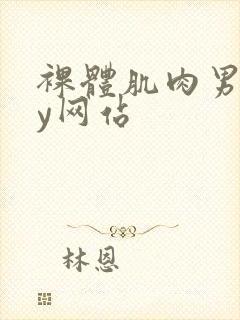 裸體肌肉男
y网佔
林恩